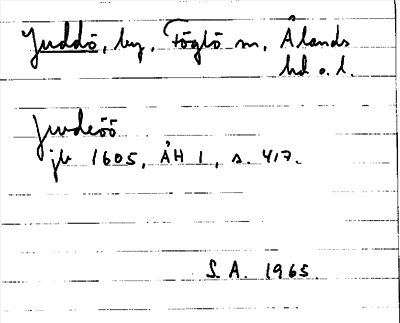 Juddö, by, Föglö sn, Ålands
hd o. l.
Jwdeöö
jb 1605, ÅH 1, s. 417.
S. A. 1965.